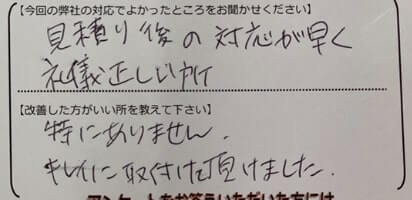 【今回の弊社の対応でよかったところをお聞かせください】
見積り後の対応が早く
礼儀正しい所
【改善した方がいい所を教えて下さい】
特にありません.
キレイに取付けて頂けました.
アンケートをお答えいただいた方には